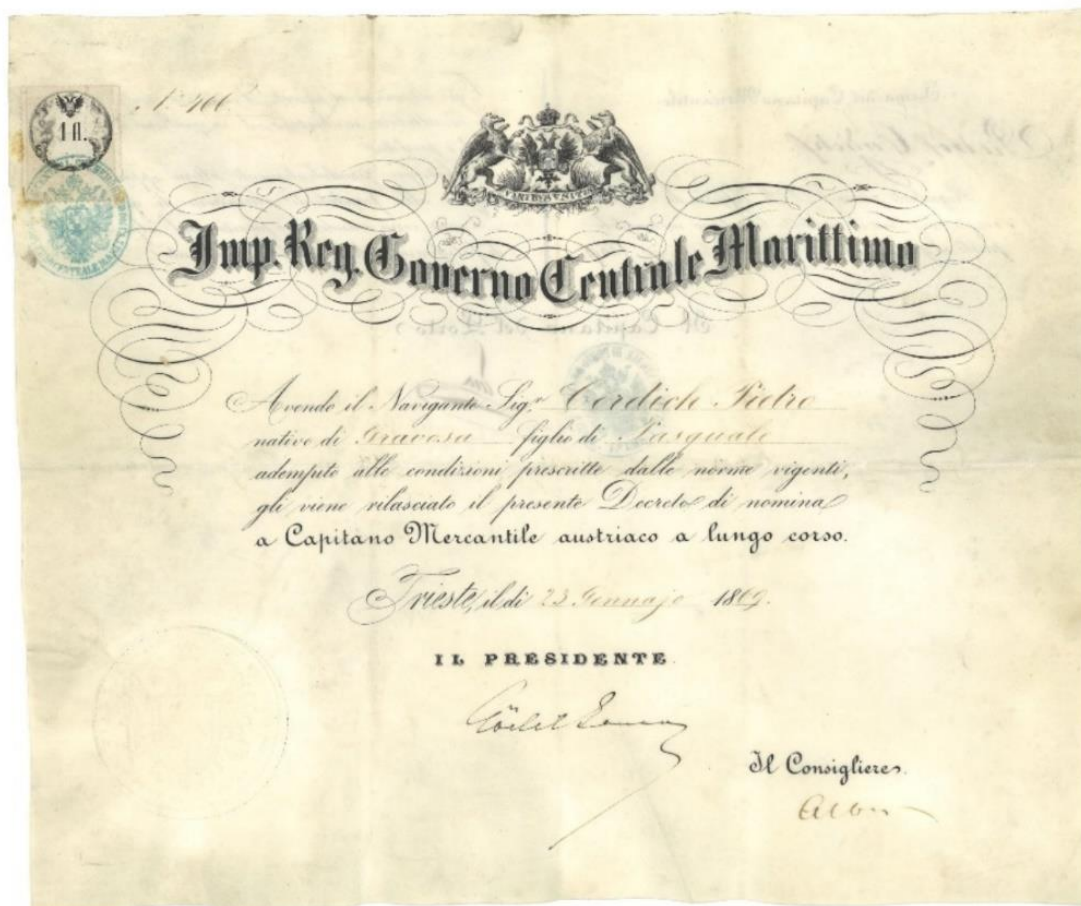 1 fl.
N. 466.
VIRIBUS UNITIS
Imp. Reg. Governo Centrale Marittimo
Avendo il Navigante Sigr. Cerdich Pietro
nativo di Gravosa figlio di Pasquale
adempito alle condizioni prescritte dalle norme vigenti,
gli viene rilasciato il presente Decreto di nomina
a Capitano Mercantile austriaco a lungo corso.
Trieste, il dì 23 Gennajo 1869.
IL PRESIDENTE
Il Consigliere